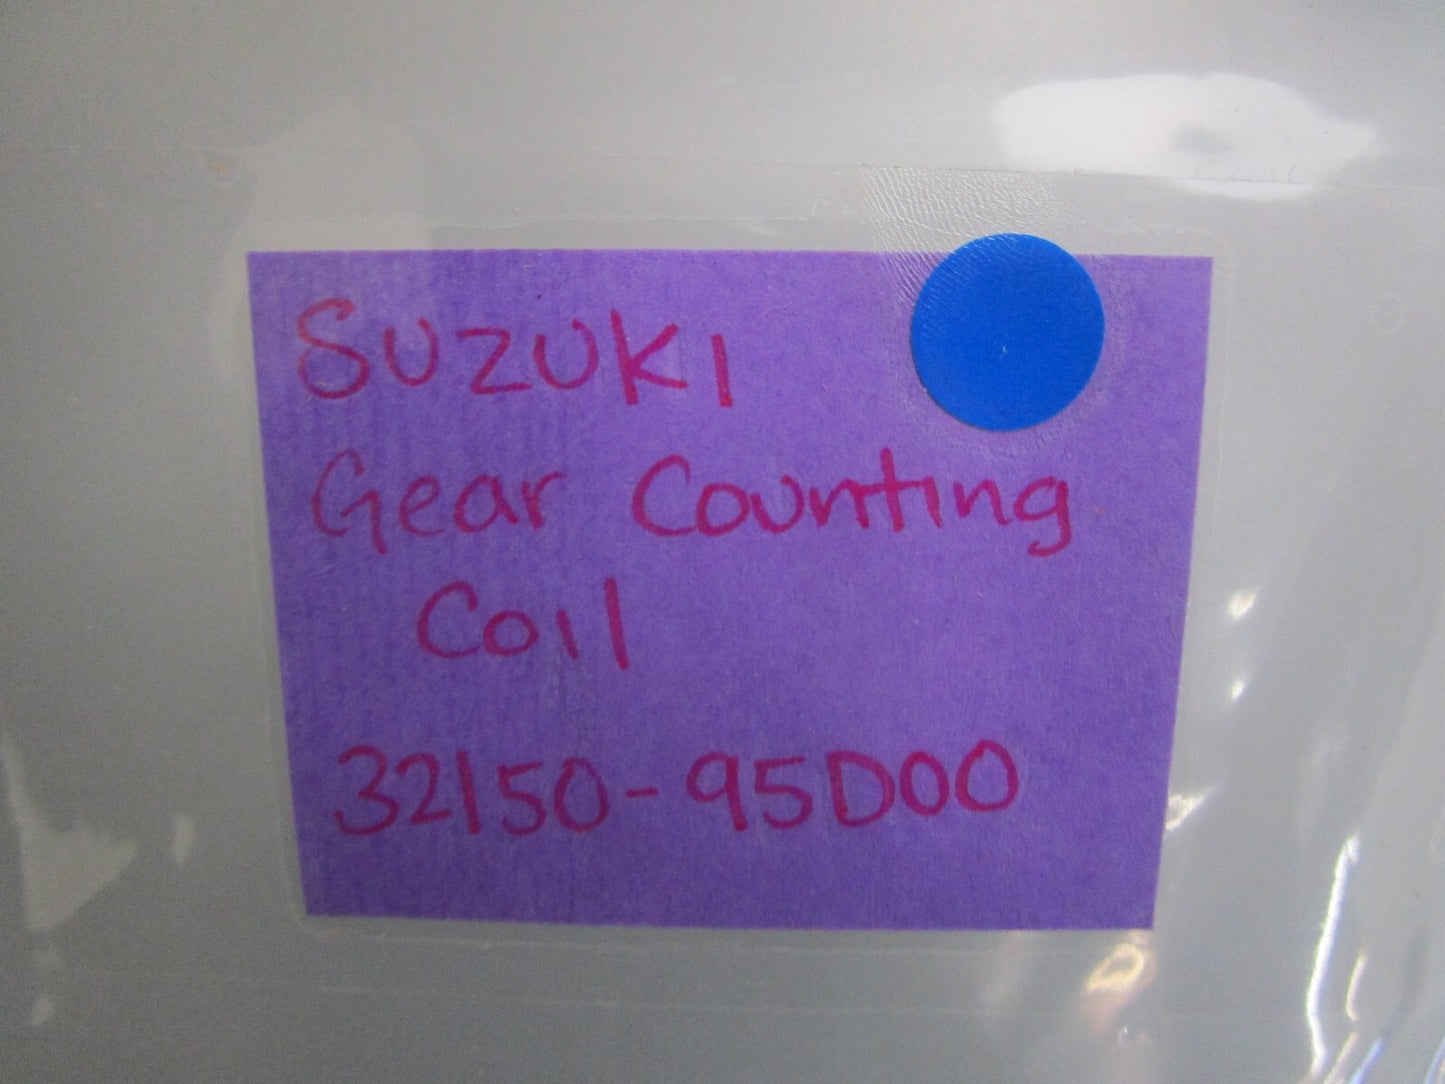 Suzuki
Gear Counting
Coil
32150-95D00